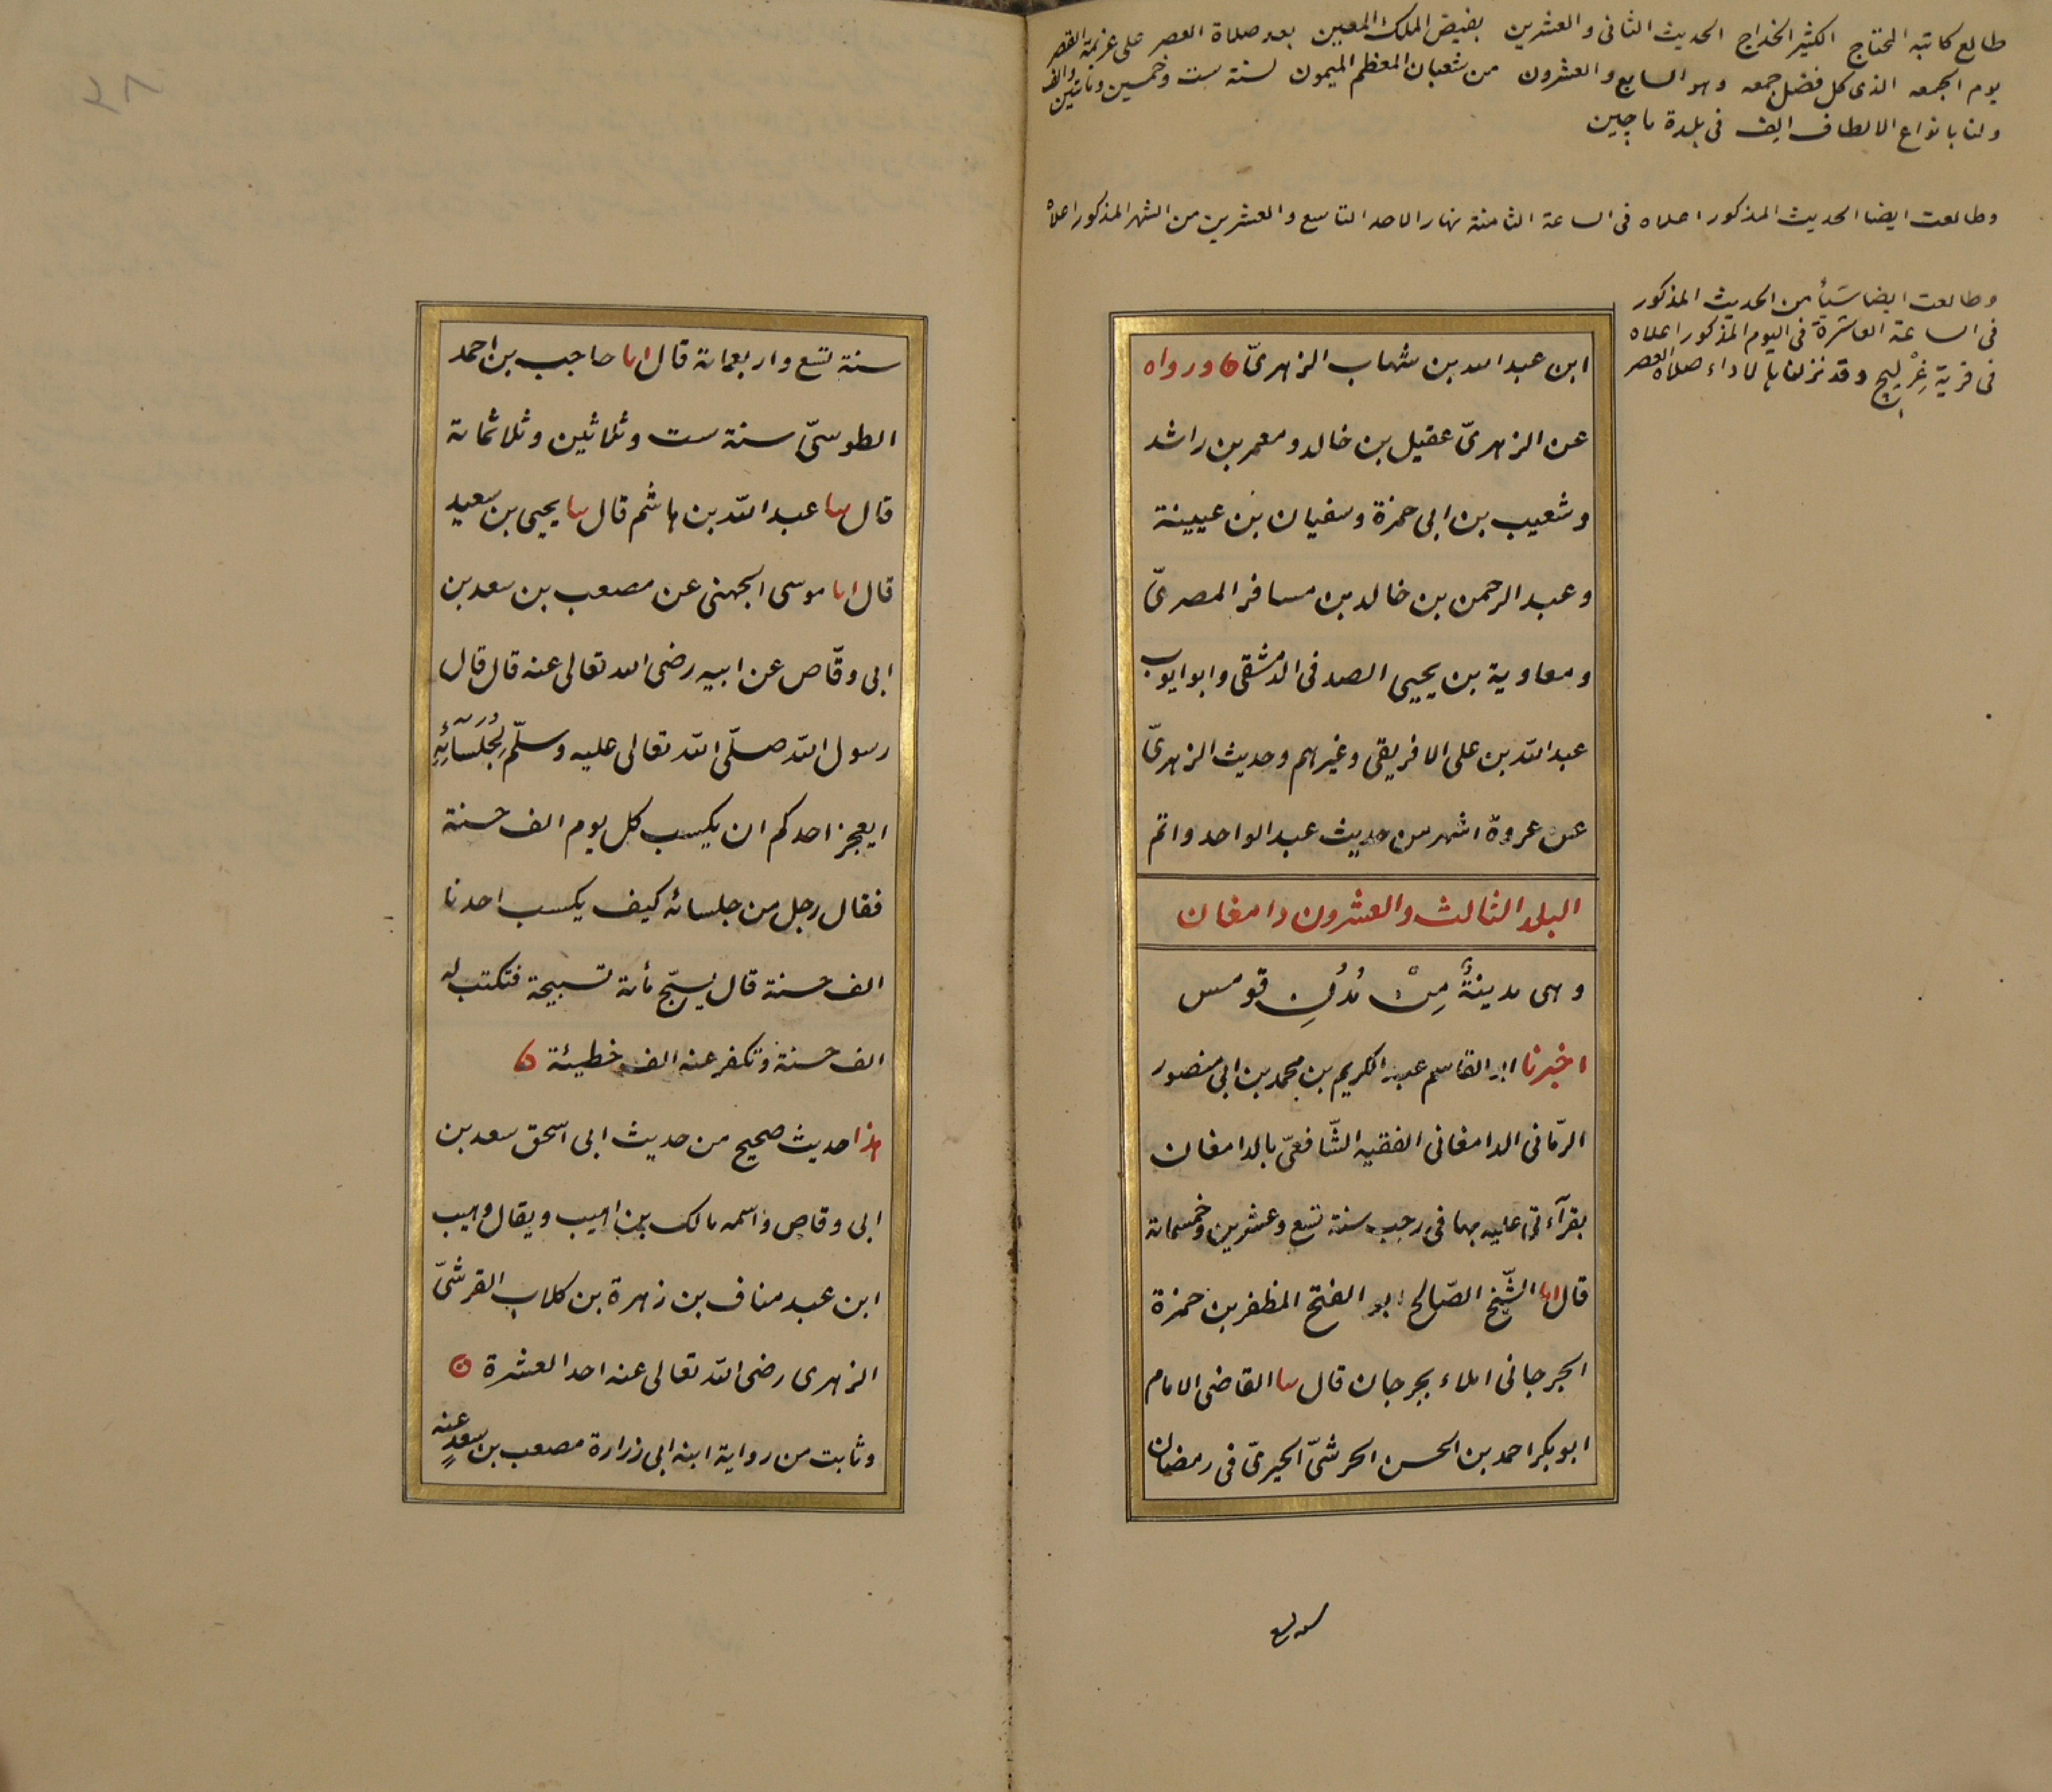 طالع كاتبه المحتاج الكثير الخداج الحديث الثانى والعشرين بفيض الملك المعين بعد صلاة العصر على عزيمة القصر
يوم الجمعه الذى كل فضل جمعه وهو السابع والعشرون من شعبان المعظم الميمون لسنة ست وخمسين ومأتين والف
ولنا بانواع الالطاف الف فى بلدة ماجين
وطالعت ايضا الحديث المذكور اعلاه فى الساعة الثامنة نهار الاحد التاسع والعشرين من الشهر المذكور اعلاه
وطالعت ايضا شيأ من الحديث المذكور
فى الساعة العاشرة فى اليوم المذكور اعلاه
فى قرية وقد نزلنا بها لاداء صلاة العصر
ابن عبد الله بن شهاب الزهرىّ ورواه
عن الزهرىّ عقيل بن خالد ومعمر بن راشد
وشعيب بن ابى حمزة وسفيان بن عيينة
وعبد الرحمن بن خالد بن مسافر المصرىّ
ومعاوية بن يحيى الصدفى الدمشقى وابو ايوب
عبد الله بن على الافريقى وغيرهم وحديث الزهرىّ
عن عروة اشهر من حديث عبد الواحد واتم
البلد الثالث والعشرون دامغان
وهى مدينةٌ مِنْ مُدُنِ قومس
اخبرنا ابو القاسم عبد الكريم بن محمد بن ابى منصور
الرمّانى الدامغانى الفقيه الشّافعىّ بالدامغان
بقرآءتى عليه بها فى رجب سنة تسع وعشرين وخمسمائة
قال انا الشّيخ الصّالح ابو الفتح المظفر بن حمزة
الجرجانى املاء بجرجان قال نا القاضى الامام
ابو بكر احمد بن الحسن الحرشىّ الحيرىّ فى رمضان
سنة تسع واربعمائة قال انا حاجب بن احمد
الطوسىّ سنة ست وثلاثين وثلاثمائة
قال نا عبد الله بن هاشم قال نا يحيى بن سعيد
قال انا موسى الجهنى عن مصعب بن سعد بن
ابى وقّاص عن ابيه رضى الله تعالى عنه قال قال
رسول الله صلّى الله تعالى عليه وسلّم لِجُلَسَآئِهِ
ايعجز احدكم ان يكسب كل يوم الف حسنة
فقال رجل من جلسائه كيف يكسب احدنا
الف حسنة قال يسبّح مأئة تسبيحة فتكتب له
الف حسنة وتكفر عنه الف خطيئة
هذا حديث صحيح من حديث ابى اسحق سعد بن
ابى وقاص واسمه مالك بن اهيب ويقال وهيب
ابن عبد مناف بن زهرة بن كلاب القرشىّ
الزهرى رضى الله تعالى عنه احد العشرة
وثابت من رواية ابنه ابى زرارة مصعب بن سعدٍ عنه